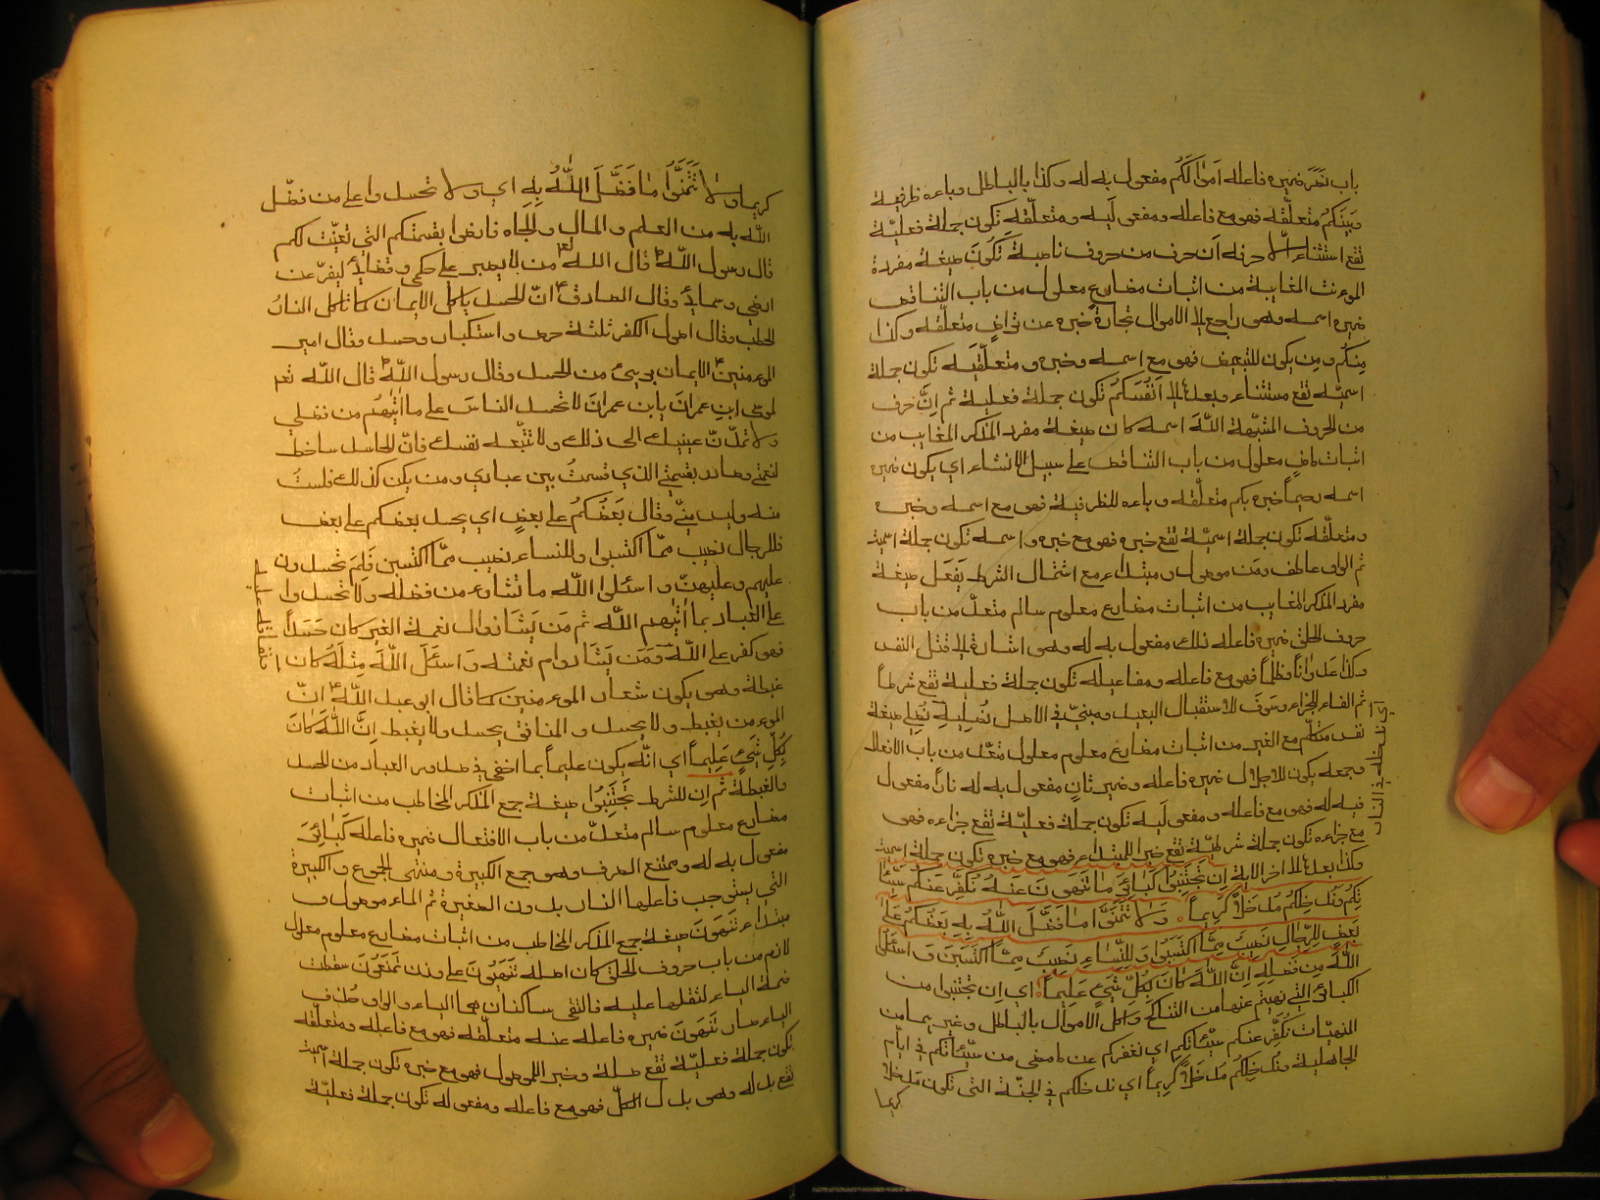 باب نصر ضميره فاعله اموالكم مفعول به له وكذا بالباطل وباءه ظرفية
وبينكم متعلقه فهو مع فاعله ومفعوليه ومتعلقه تكون جملة فعلية
تقع استثناء الا حرفه ان حرف من حروف ناصبة تكون صيغة مفردة
الموءنث الغايبة من اثبات مضارع معلول من باب الناقص
ضميره اسمه وهو راجع الى الاموال تجارة خبره عن تراض متعلقه وكذا
منكم ومن يكون للتبعيض فهو مع اسمه وخبره ومتعلقيه تكون جملة
اسمية تقع مستثناء وبعدها الى انفسكم تكون جملة فعلية ثم ان حرف
من الحروف المشبهة الله اسمه كان صيغة مفرد المذكر الغايب من
اثبات ماض معلول من باب الناقص على سبيل الانشاء اي يكون ضميره
اسمه رحيما خبره بكم متعلقه وباءه للظرفية فهو مع اسمه وخبره
ومتعلقه تكون جملة اسمية تقع خبره فهو مع خبره واسمه تكون جملة اسمية
ثم الواو عاطف ومن موصول ومبتداء مع اشتمال الشرط يفعل صيغة
مفرد المذكر الغايب من اثبات مضارع معلوم سالم متعد من باب
حروف الحلق ضميره فاعله ذلك مفعول به له وهو اشارة الى قتل النفس
وكذا عدوانا وظلما فهو مع فاعله ومفاعيله تكون جملة فعلية تقع شرطا
ثم الفاء للجزاء وسوف للاستقبال البعيد ومبني في الاصل نصليه نصلي صيغة
نفس متكلم مع الغير من اثبات مضارع معلوم معلول متعد من باب الافعال
وجمعه يكون للاجلال ضميره فاعله وضمير ثان مفعول به له نارا مفعول
فيه له فهو مع فاعله ومفعوليه تكون جملة فعلية تقع جزاءه فهو
مع جزاءه تكون جملة شرطية تقع خبرا للمبتداء فهو مع خبره تكون جملة اسمية
وكذا بعدها الى اخر الاية ان تجتنبوا كبائر ما تنهون عنه نكفر عنكم سيئا
تكم وندخلكم مدخلا كريما ولا تتمنوا ما فضل الله به بعضكم على
بعض للرجال نصيب مما اكتسبوا وللنساء نصيب مما اكتسبن واسئلوا
الله من فضله ان الله كان بكل شيء عليما اي ان تجتنبوا من
الكبائر التي نهيتم عنها من النكاح واكل الاموال بالباطل وغيرهما من
المنهيات نكفر عنكم سيئاتكم اي نغفركم عن ما مضى من سيئاتكم في ايام
الجاهلية وندخلكم مدخلا كريما اي ندخلكم في الجنة التي تكون مدخلا
كريما
اي ندخله في النار
كريما ولا تتمنوا ما فضل الله به اي ولا تحسدوا على من فضل
الله به من العلم والمال والجاه فارضوا بقسمتكم التي تعينت لكم
قال رسول الله قال الله من لا يصبر على حكمي وقضايي ليفر عن
ارضي وسمايي وقال الصادق ان الحسد ياكل الايمان كما تاكل النار
الحطب وقال اصول الكفر ثلثة حرص واستكبار وحسد وقال امير
الموءمنين الايمان بريء من الحسد وقال رسول الله قال الله تعم
لموسى ابن عمران يابن عمران لا تحسد الناس على ما اتيهم من فضلي
ولا تمدن عينيك الى ذلك ولا تتبعه نفسك فان الحاسد ساخط
لنعمتي وصاد بقسمتي الذي قسمت بين عبادي ومن يكن كذلك فلست
منه وليس مني وقال بعضكم على بعض اي يحسد بعضكم على بعض
فللرجال نصيب مما اكتسبوا وللنساء نصيب مما اكتسبن فلم تحسدون
عليهم وعليهن واسئلوا الله ما تشاؤن من فضله ولا تحسدوا
على العباد بما اتيهم الله ثم من يشا زوال نعمة الغير كان حسدا
فهو كفر على الله ومن يشا دوام نعمته واسئل الله مثله كان
غبطة وهو يكون شعار الموءمنين كما قال ابو عبد الله ان
الموءمن يغبط ولا يحسد والمنافق يحسد ولا يغبط ان الله كان
بكل شيء عليما اي انه يكون عليما بما اخفي في صدور العباد من الحسد
والغبطة ثم ان للشرط تجتنبوا صيغة جمع المذكر المخاطب من اثبات
مضارع معلوم سالم متعد من باب الافتعال ضميره فاعله كبائر
مفعول به له وممتنع الصرف وهو جمع الكبيرة ومنتهى الجموع والكبيرة
التي يستوجب فاعلها النار بدون الصغيرة ثم الماء موصول و
مبتداء تنهون صيغة جمع المذكر المخاطب من اثبات مضارع معلوم معلول
لازم من باب حروف الحلق كان اصله تنهيون على وزن تمنعون سقطت
ضمة الياء لثقلها عليه فالتقى ساكنان هما الياء والواو حذف
الياء صار تنهون ضميره فاعله عنه متعلقه فهو مع فاعله ومتعلقه
تكون جملة فعلية تقع صلة وخبر الموصول فهو مع خبره تكون جملة اسمية
تقع بدله وهو بدل الكل فهو مع فاعله ومفعوله تكون جملة فعلية